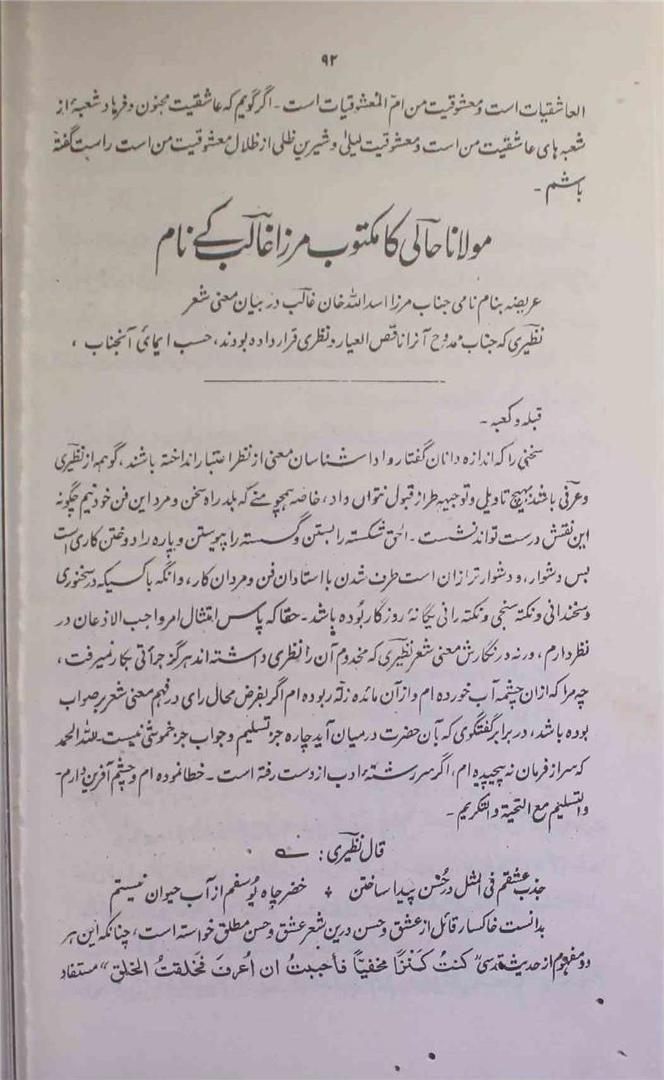 ۹۲
العاشقیات است و معشوقیت من ام المعشوقیات است۔ اگر گویم که عاشقیت مجنون و فرہاد شعبۂ از
شعبه ہای عاشقیت من است و معشوقیت لیلیٰ و شیرین ظلی از ظلال معشوقیت من است راست گفته
باشم۔
مولانا حالی کا مکتوب مرزا غالب کے نام
عریضہ بنام نامی جناب مرزا اسد اللہ خان غالب در بیان معنی شعر
نظیری که جناب ممدوح آنرا ناقص العیار و نظری قرار داده بودند، حسب ایمائ آنجناب ،
قبلہ و کعبہ۔
سخنی را که اندازه دانان گفتار و ادا شناسان معنی از نظر اعتبار انداخته باشند، گو ہمه از نظیری
و عرفی باشد بہیچ تاویل و توجیہہ طراز قبول نتواں داد، خاصہ ہمچو منے که بلد راه سخن و مرد این فن خود نیم چگونه
این نقش درست تواند نشست۔ الحق شکستہ را بستن و گسستہ را پیوستن و پاره را دوختن کاری است
بس دشوار، و دشوار تر ازان است طرف شدن با استادان فن و مردان کار، وانگہ با کسیکہ در سخنوری
و سخندانی و نکتہ سنجی و نکتہ رانی یگانۂ روزگار بوده باشد۔ حقا که پاس امتثال امر واجب الاذعان در
نظر دارم، ورنہ در نگارش معنی شعر نظیری که مخدوم آن را نظری داشتہ اند ہرگز جرأتی بکار نمیرفت،
چہ مرا که ازان چشمہ آب خورده ام و از آن مائده زلّہ ربوده ام اگر بفرض محال رای در فہم معنی شعر بر صواب
بوده باشد، در برابر گفتگوی که بآن حضرت درمیان آید چاره جز تسلیم و جواب جز خموشی نیست۔ للّٰہ الحمد
که سر از فرمان نہ پیچیده ام، اگر سررشتہ ادب از دست رفتہ است۔ خطا نموده ام و چشم آفرین دارم۔
والتسلیم مع التحیۃ والتکریم۔
قال نظیری :
جذب عشقم فی المثل در حُسن پیدا ساختن خضر چاه یوسفم از آب حیوان نیستم
بدانست خاکسار قائل از عشق و حسن درین شعر عشق و حسن مطلق خواستہ است، چنانکہ این ہر
دو مفہوم از حدیث قدسی "کنتُ کَنْزاً مخفیاً فأحببتُ ان أُعرفَ فخلقتُ الخلق" مستفاد